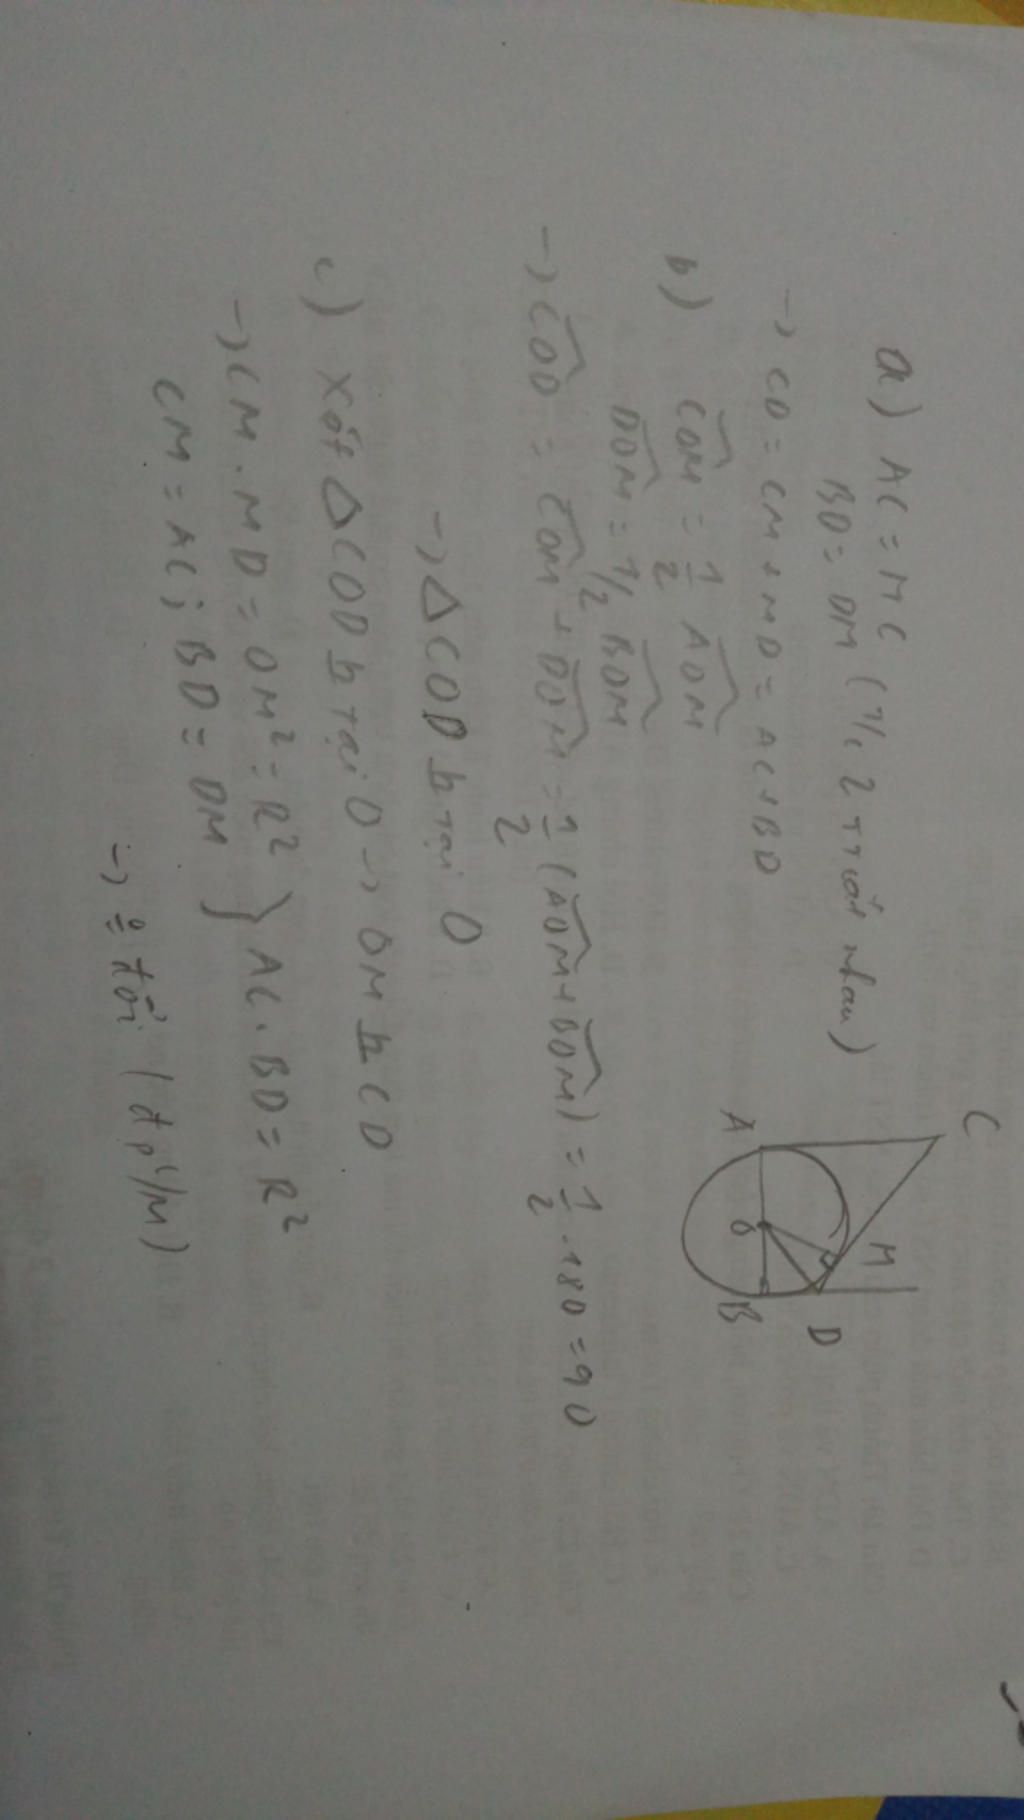 a) AC = MC
BD = DM (T/c 2 TTiết nhau)
-> CD = CM + MD = AC + BD
b) COM = 1/2 AOM
DOM = 1/2 BOM
-> COD = COM + DOM = 1/2 (AOM + BOM) = 1/2 . 180 = 90
-> ΔCOD ⊥ Tại O
c) Xét ΔCOD ⊥ Tại O -> OM ⊥ CD
-> CM . MD = OM² = R²
CM = AC ; BD = DM } AC . BD = R²
-> đổi (đpc/m)
C
A
O
M
B
D